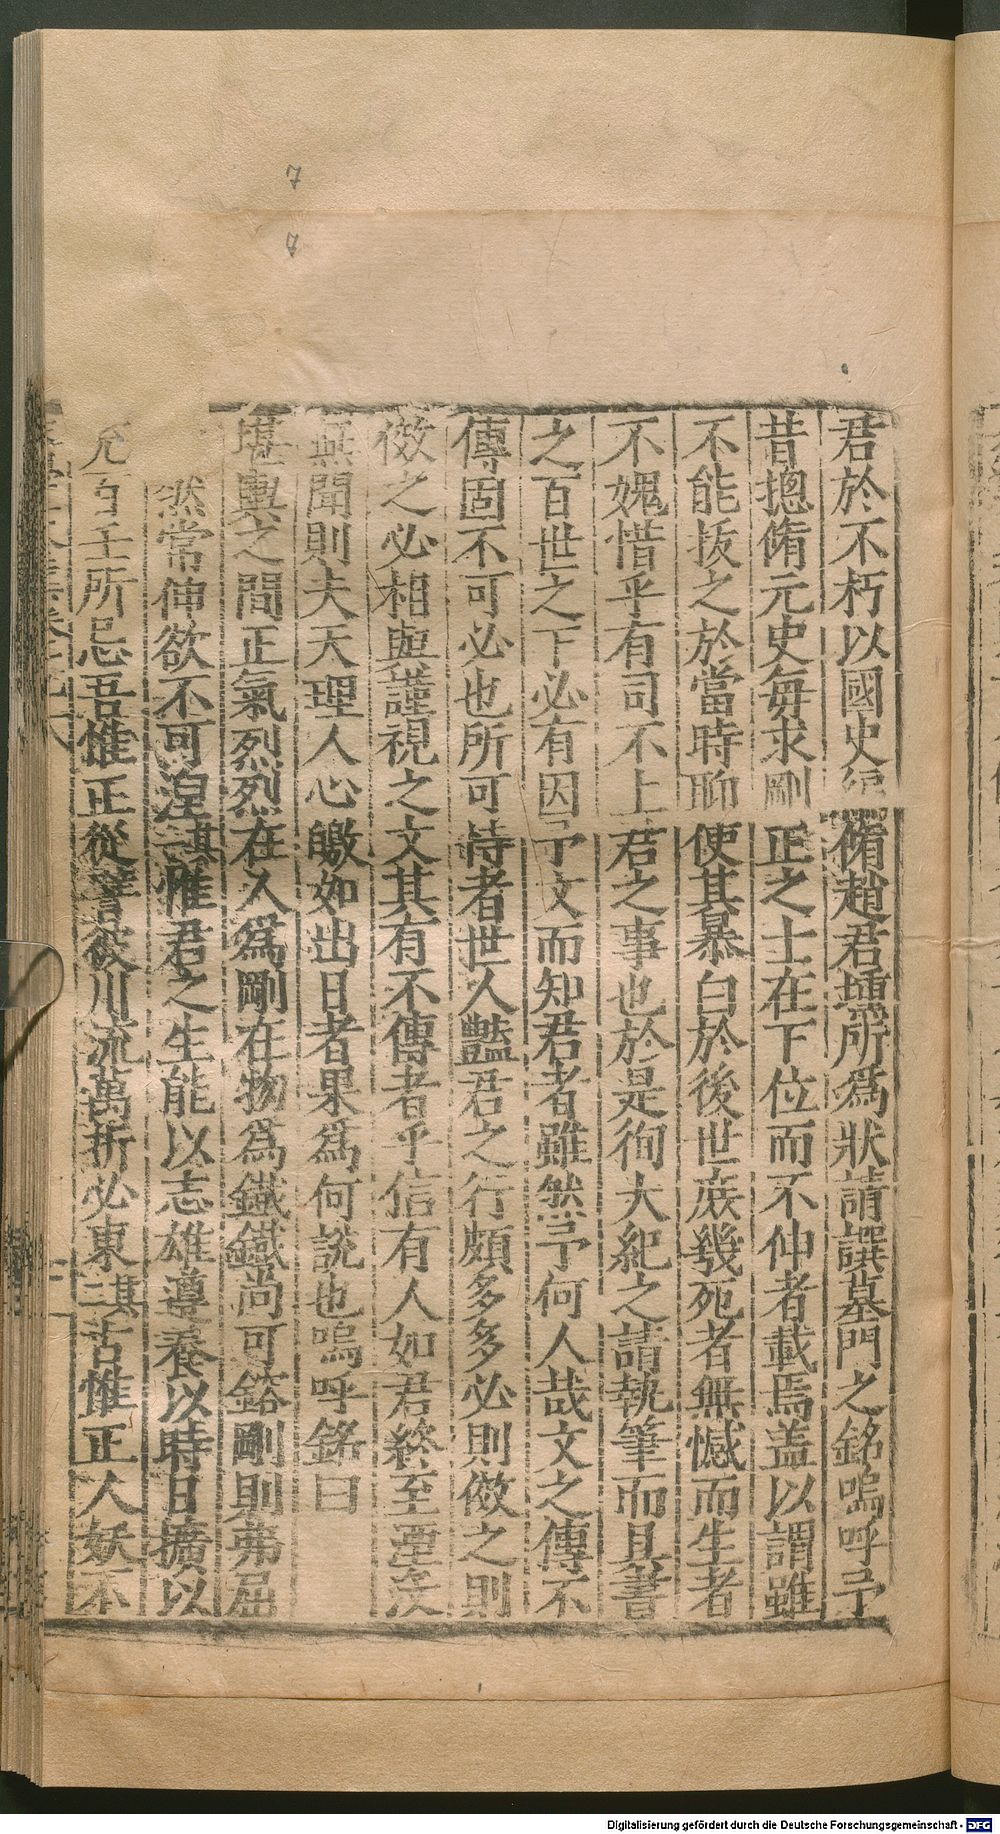 君於不朽以國史編脩趙君壎所爲狀請譔墓門之銘嗚呼予
昔摠脩元史每求剛正之士在下位而不伸者載焉盖以謂雖
不能抜之於當時聊使其暴白於後世庻幾死者無憾而生者
不媿惜乎有司不上君之事也於是徇大紀之請執筆而具書
之百世之下必有因予文而知君者雖然予何人哉文之傳不
傳固不可必也所可恃者世人豔君之行頗多多必則傚之則
傚之必相與謹視之文其有不傳者乎信有人如君終至堙沒
無聞則夫天理人心皦如出日者果爲何說也嗚呼銘曰
堪輿之間正氣烈烈在人爲剛在物爲鐵鐵尚可鎔剛則弗屈
然常伸欲不可湼其一惟君之生能以志雄遵養以時日擴以
充百壬所忌吾惟正從譬彼川流萬折必東其二吉惟正人妖不
7
7
Digitalisierung gefördert durch die Deutsche Forschungsgemeinschaft - DFG